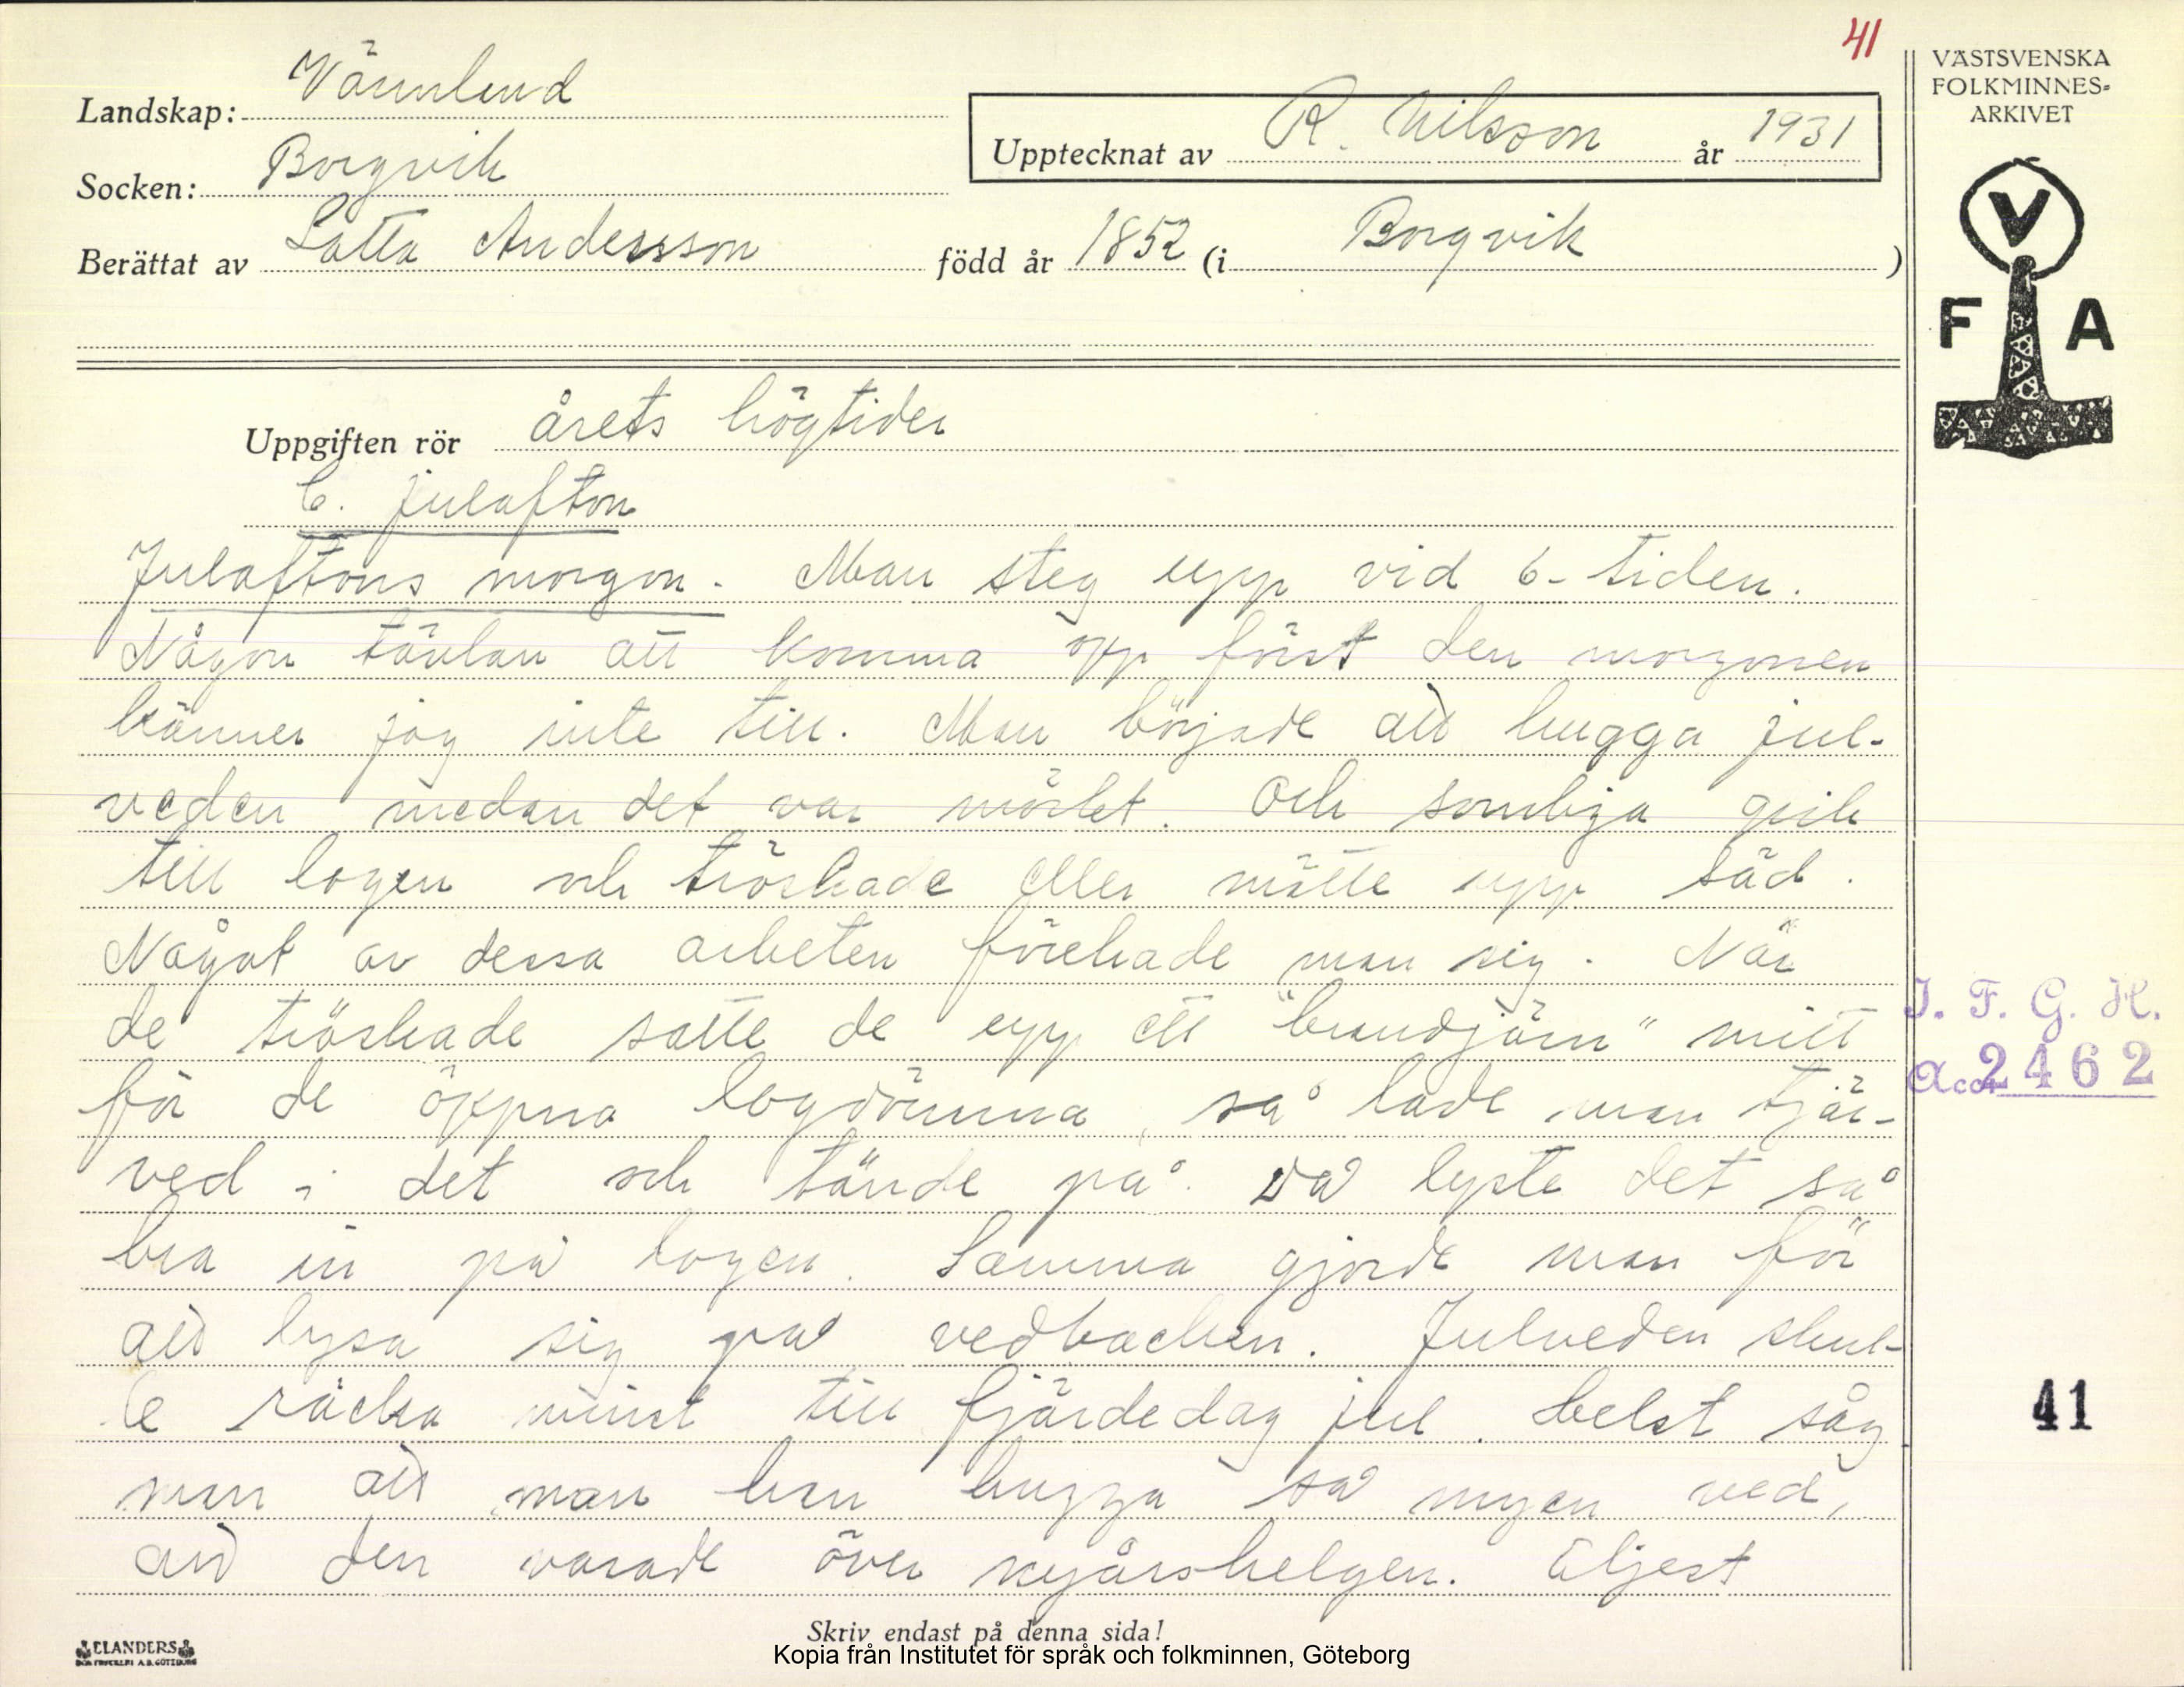 41
VÄSTSVENSKA
FOLKMINNES-
ARKIVET
Landskap: Värmland
Upptecknat av R. Nilsson år 1931
Socken: Borgvik
Berättat av Lotta Andersson född år 1852 (i Borgvik )
V
F A
Uppgiften rör årets högtider
C. julafton
Julaftons morgon. Man steg upp vid 6-tiden.
Någon tävlan att komma opp först den morgonen
känner jag inte till. Man började att hugga jul-
veden medan det var mörket. Och somliga gick
till logen och tröskade eller mätte upp säd.
Något av dessa arbeten förehade man sig. När
de tröskade satte de upp ett "brandjärn" mitt
för de öppna logdörrna, så lade man tjär-
ved i det och tände på. Då lyste det så
bra in på logen. Samma gjorde man för
att lysa sig på vedbacken. Julveden skul-
le räcka minst till fjärdedag jul. Helst såg
man att man han hugga så mycn ved,
att den varade över nyårshelgen. Eljest
I. F. G. H.
Acc. 2462
41
Skriv endast på denna sida!
ELANDERS
BOKTRYCKERI A.B. GÖTEBORG
Kopia från Institutet för språk och folkminnen, Göteborg